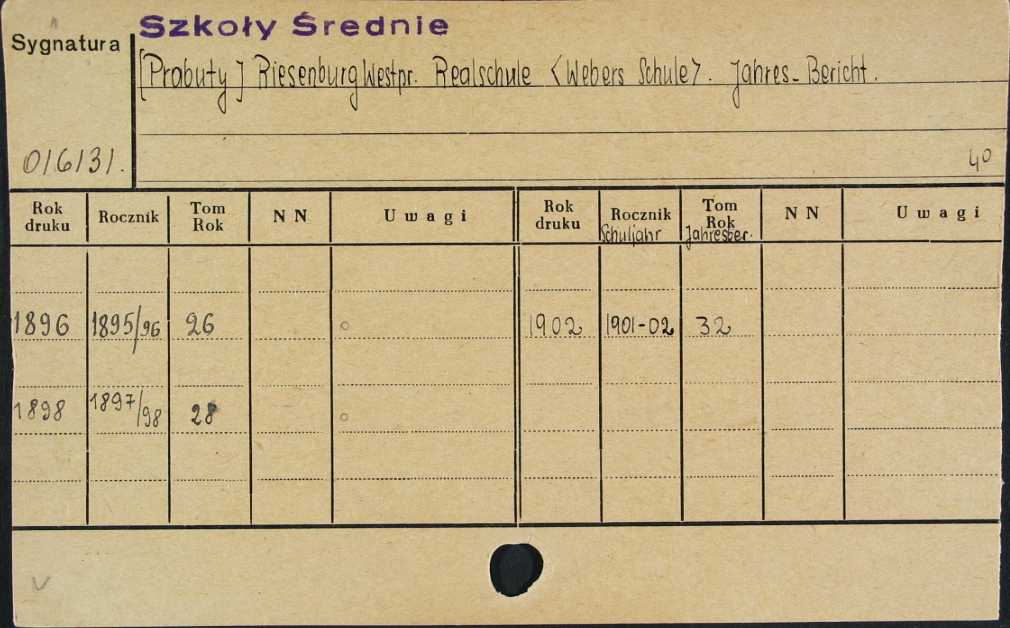 Szkoły Średnie
Sygnatura
[Prabuty] Riesenburg Westpr. Realschule <Webers Schule>. Jahres-Bericht.
016131.
4°
Rok druku Rocznik Tom Rok NN Uwagi Rok druku Rocznik Schuljahr Tom Rok Jahresber. NN Uwagi
1896 1895/96 26 1902 1901-02 32
1898 1897/98 28